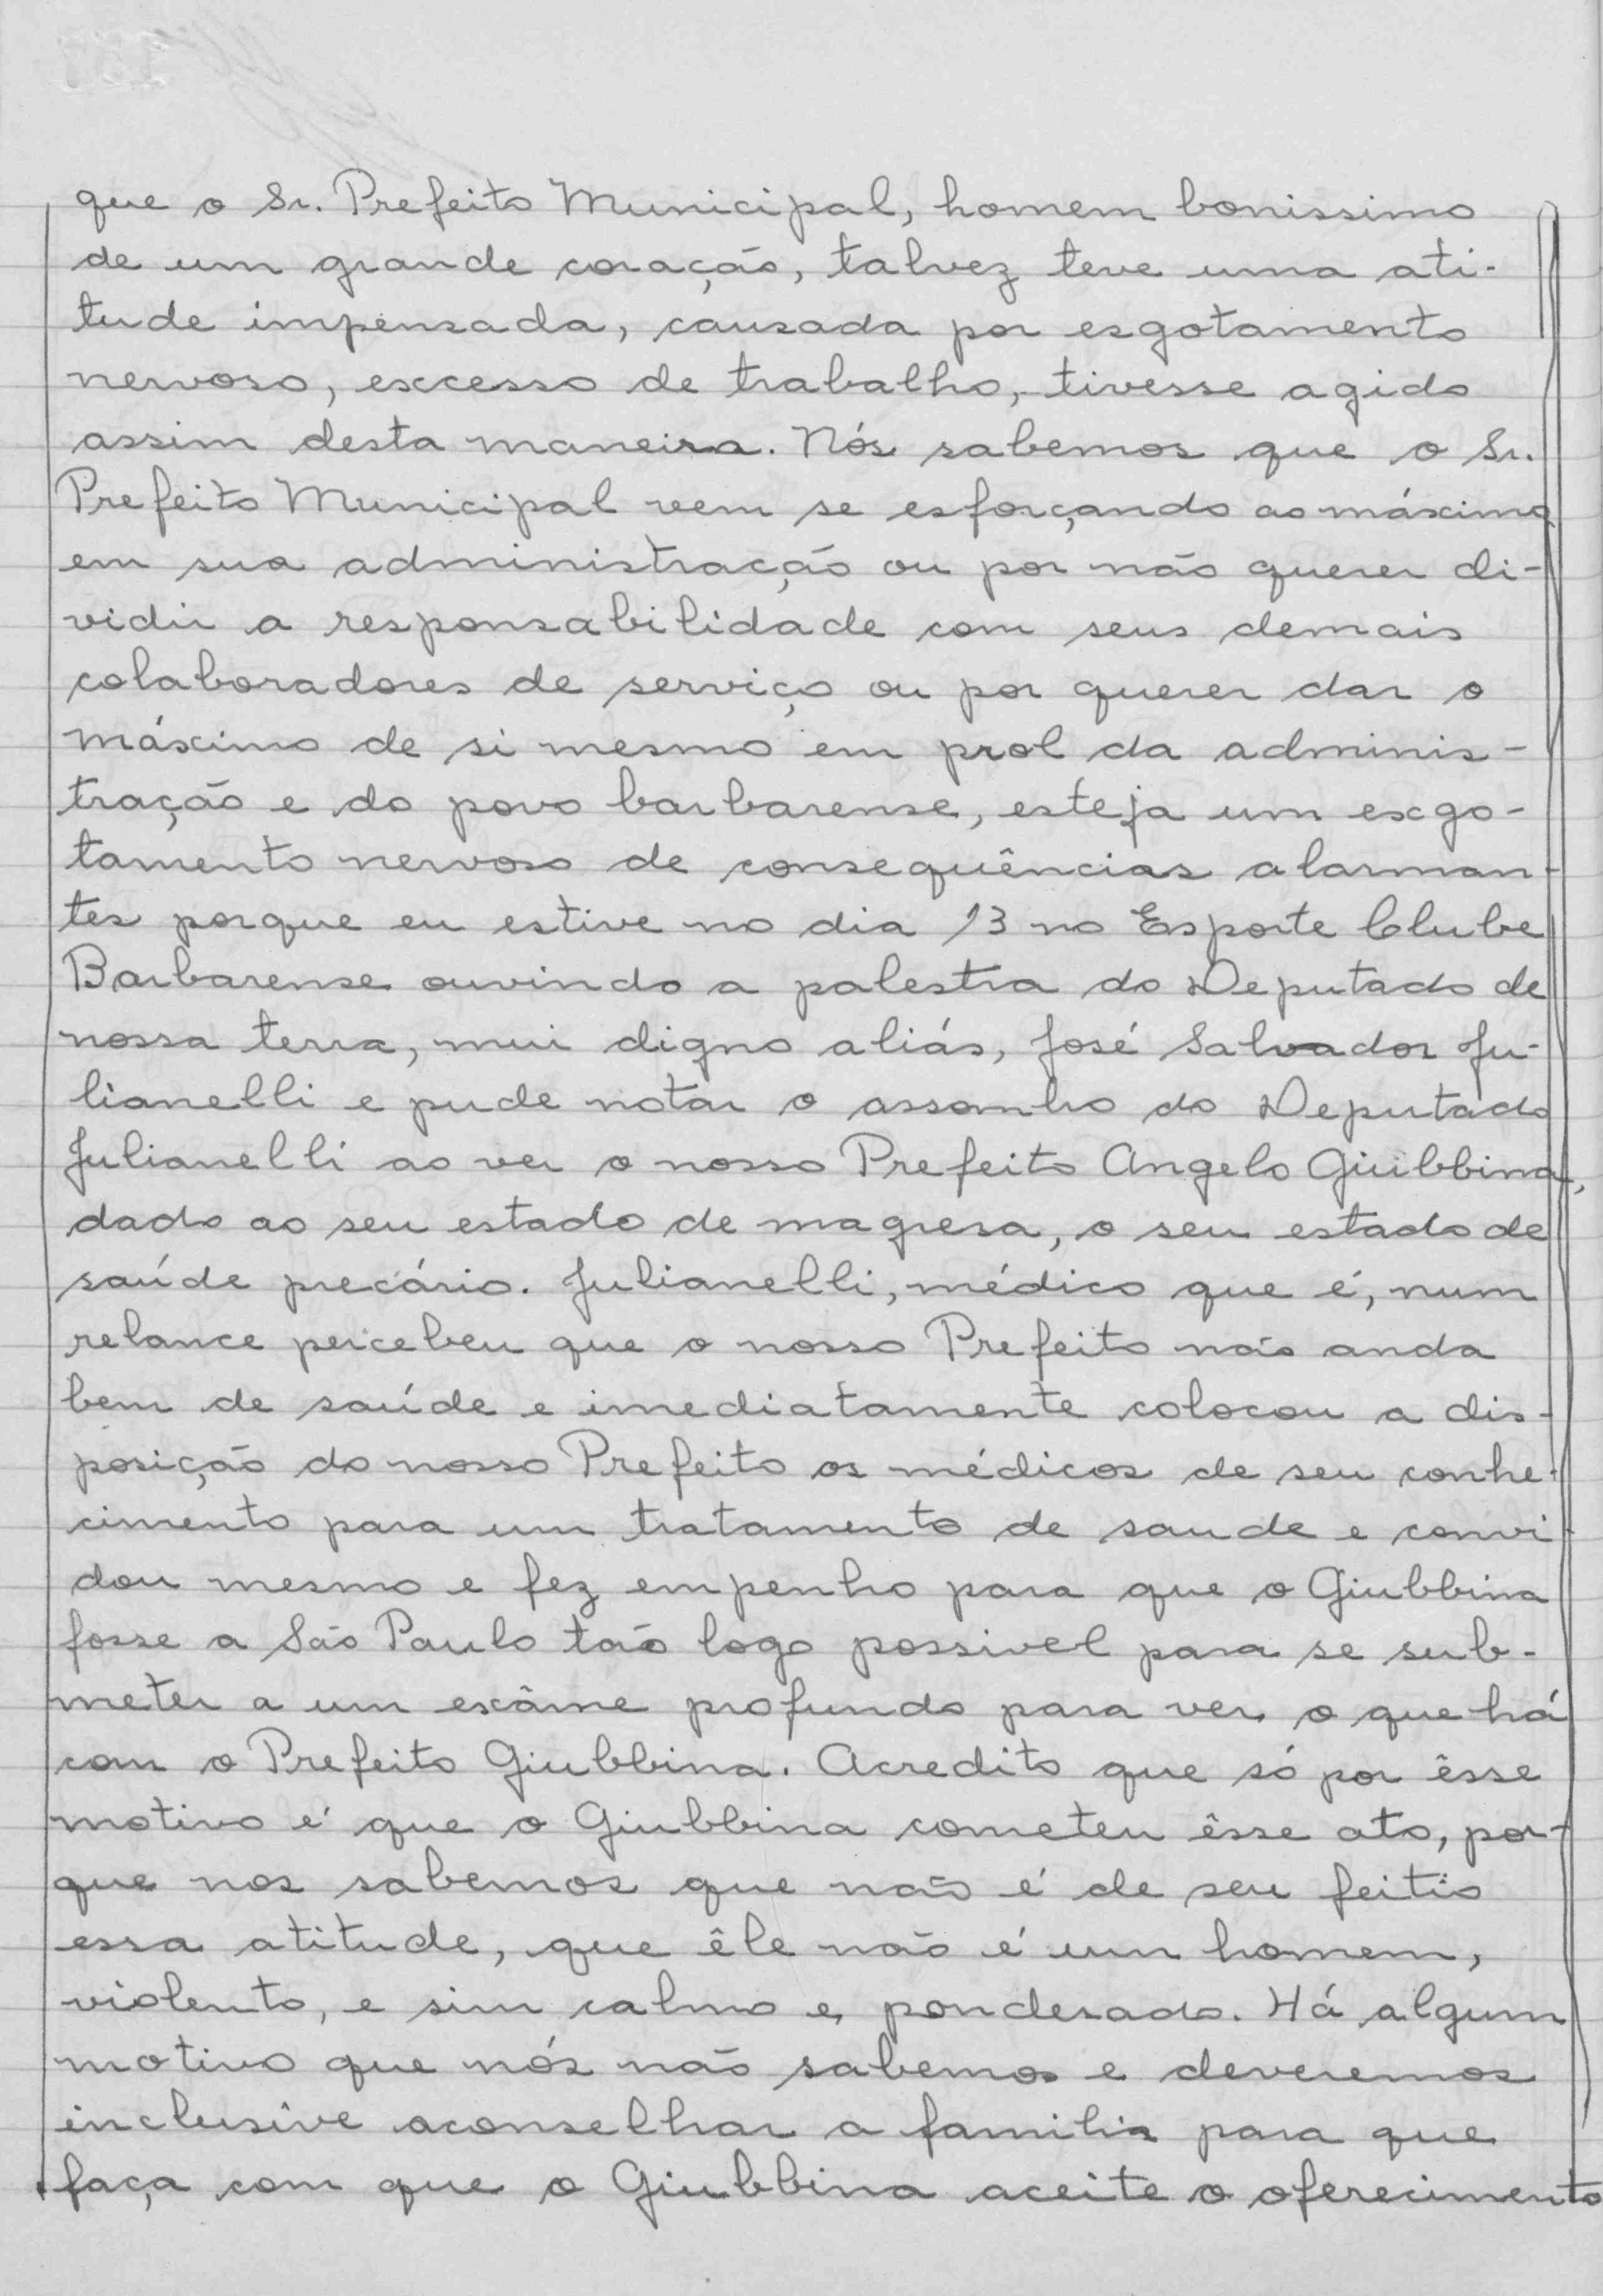 que o Sr. Prefeito Municipal, homem bonissimo
de um grande coração, talvez teve uma ati-
tude impensada, causada por esgotamento
nervoso, excesso de trabalho, tivesse agido
assim desta maneira. Nós sabemos que o Sr.
Prefeito Municipal vem se esforçando ao máximo
em sua administracção ou por não querer di-
vidir a responsabilidade com seus demais
colaboradores de serviço ou por querer dar o
máximo de si mesmo em prol da adminis-
tração e do povo barbarense, esteja um exgo-
tamento nervoso de consequências alarman-
tes porque eu estive no dia 13 no Esporte Clube
Barbarense ouvindo a palestra do Deputado de
nossa terra, mui digno aliás, José Salvador Ju-
lianelli e pude notar o assombro do Deputado
Julianelli ao ver o nosso Prefeito Angelo Giubbina,
dado ao seu estado de magresa, o seu estado de
saúde precário. Julianelli, médico que é, num
relance percebeu que o nosso Prefeito não anda
bem de saúde e imediatamente colocou a dis-
posição do nosso Prefeito os médicos de seu conhe-
cimento para um tratamento de saude e convi-
dou mesmo e fez empenho para que o Giubbina
fosse a São Paulo tão logo possivel para se sub-
meter a um exâme profundo para ver o que há
com o Prefeito Giubbina. Acredito que só por êsse
motivo é que o Giubbina cometeu êsse ato, por-
que nos sabemos que não é de seu feitio
essa atitude, que êle não é um homem,
violento, e sim calmo e ponderado. Há algum
motivo que nós não sabemos e deveremos
inclusive aconselhar a familia para que
faça com que o Giubbina aceite o oferecimento